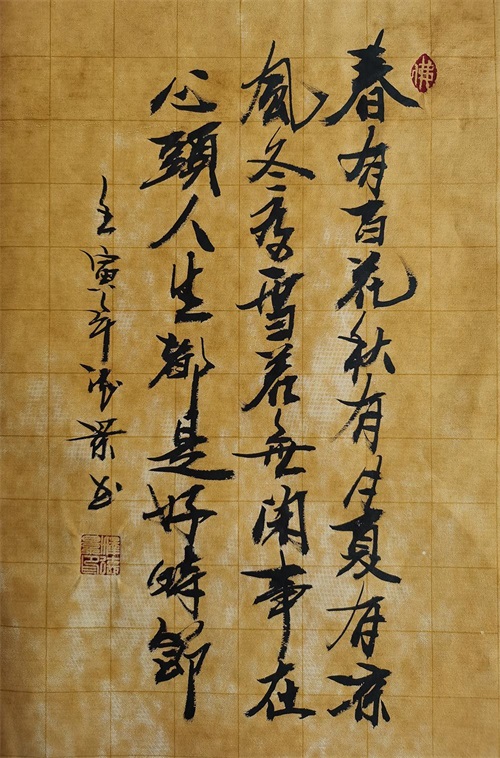 佛
春有百花秋有月夏有凉
風冬有雪若無闲事在
心頭人生都是好時節
壬寅年书